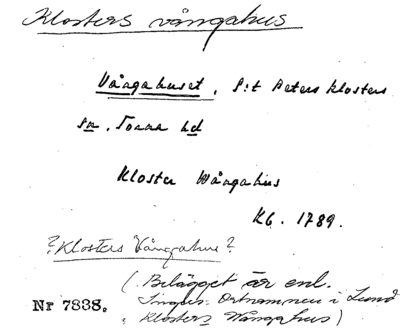 Klosters vångahus
Vångahuset, S:t Peters klosters
sn, Torna hd
Kloster Wångahus
Kb. 1789.
?Klosters Vångahus?
(. Belägget är enl.
Ingers: Ortnamnen i Lund
Nr 7838. , Klosters Wångahus)